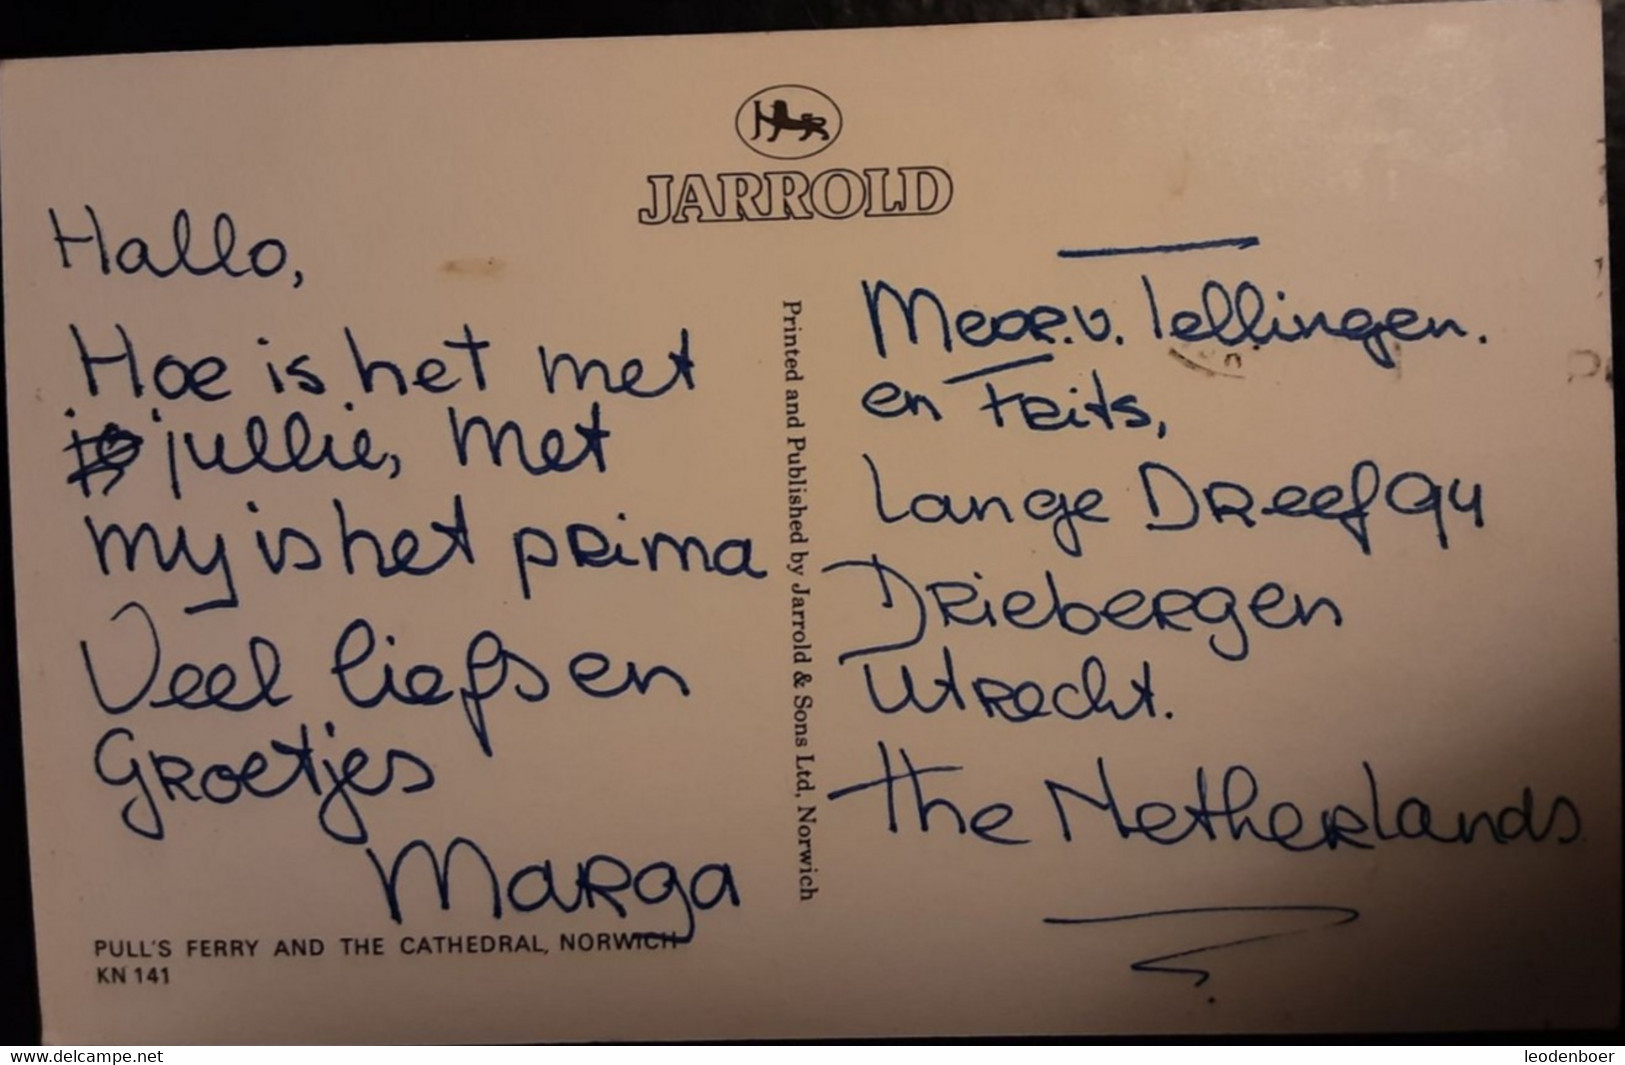 JARROLD
Hallo,
Hoe is het met
jullie, Met
my is het prima
Veel liefs en
Groetjes
Marga
PULL'S FERRY AND THE CATHEDRAL, NORWICH
KN 141
Printed and Published by Jarrold & Sons Ltd, Norwich
v. Tellingen.
en Frits,
Lange Dreef 94
Driebergen
Utrecht.
The Netherlands
www.delcampe.net
leodenboer